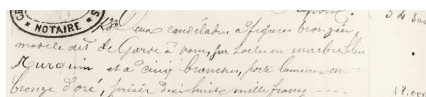 NOTAIRE
Deux candélabres à figures bronzées,
modèle dit de Garde à vous, sur socles en marbre bleu
Turquin et à cinq branches, porte lumières en
bronze doré, prisés dix huit mille francs ---- 18.000